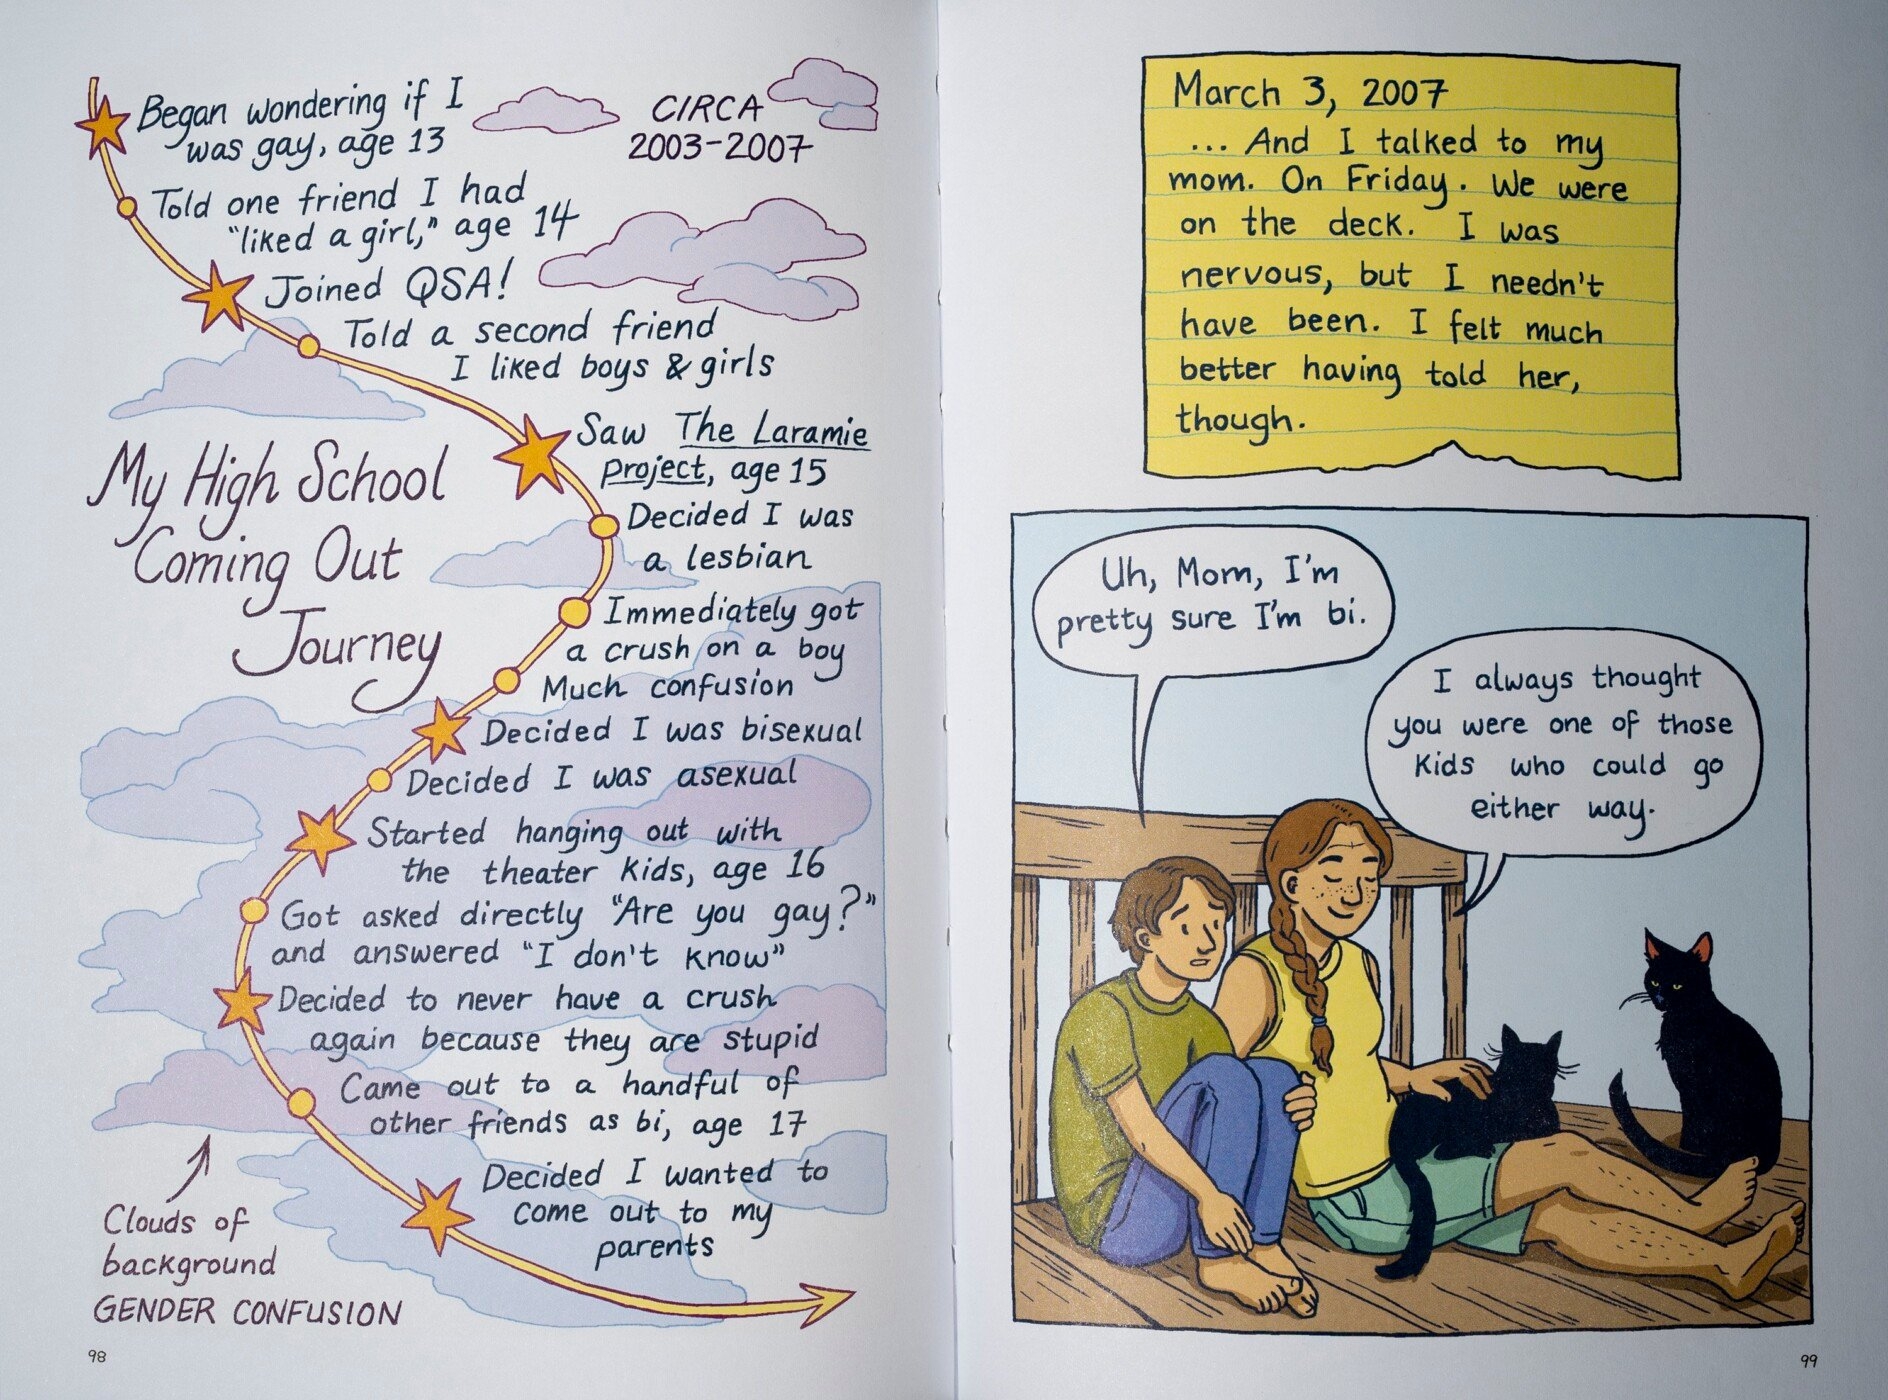 Began wondering if I
was gay, age 13
CIRCA
2003-2007
Told one friend I had
"liked a girl," age 14
Joined QSA!
Told a second friend
I liked boys & girls
Saw The Laramie
Project, age 15
My High School
Coming Out
Journey
Decided I was
a lesbian
Immediately got
a crush on a boy
Much confusion
Decided I was bisexual
Decided I was asexual
Started hanging out with
the theater kids, age 16
Got asked directly "Are you gay?"
and answered "I don't know"
Decided to never have a crush
again because they are stupid
Came out to a handful of
other friends as bi, age 17
Decided I wanted to
come out to my
parents
Clouds of
background
GENDER CONFUSION
98
March 3, 2007
... And I talked to my
mom. On Friday. We were
on the deck. I was
nervous, but I needn't
have been. I felt much
better having told her,
though.
Uh, Mom, I'm
pretty sure I'm bi.
I always thought
you were one of those
kids who could go
either way.
99